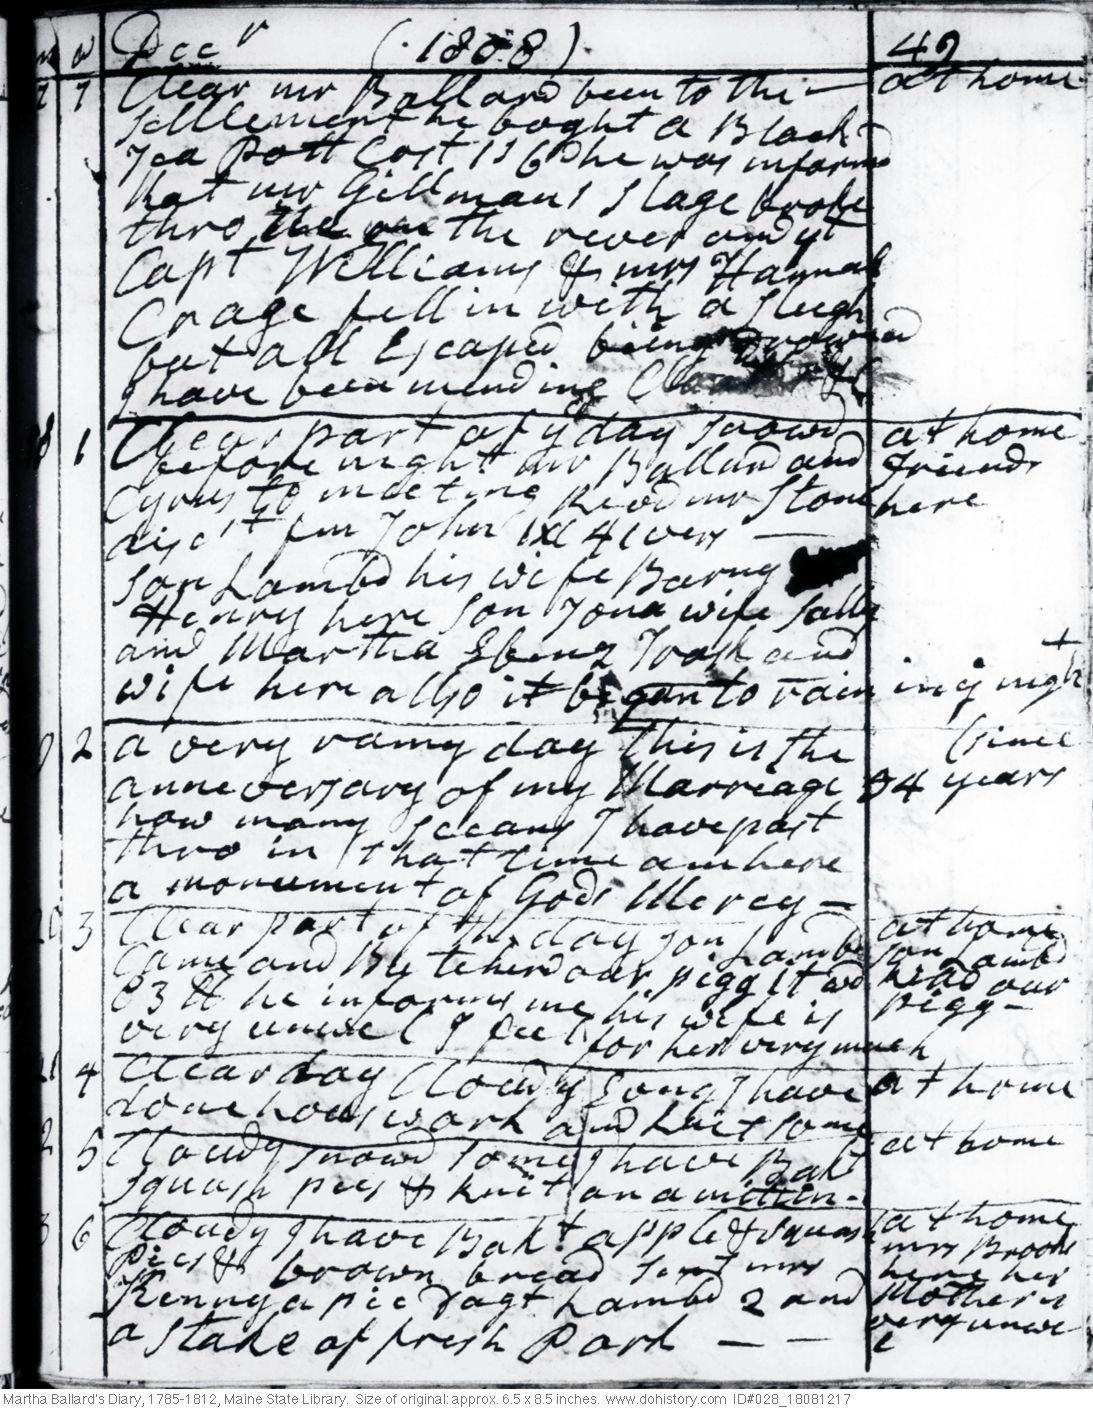 m w Decr (1808) 49
7 7 Clear mr Ballard been to the — at home
settlement he boght a Black
Tea Pott Cost 1s 6d he was informd
that mr Gillmans Stage broke
thro the the rever and yt
Capt Williams & mrs Hannah
Crage fell in with a sleigh
but all Escaped being drownd
I have been mending
18 1 Clear part of y day snowd at home
before night mr Ballard and friends
Cyrus to meeting Read mr Stone here
disct fm John IX 41 vers —
son Lambd his wife Barny
Henry here son Jona wife Sally
and Martha Ebenz Trask and
wife here allso it began to rain in y night +
2 a very rainy day This is the (since
anneversary of my Marriage 54 years
how many sceans I have past
thro in that time am here
a monument of Gods Mercy —
20 3 Clear part of the day son Lambd at home
Came and Butcherd our pigg it wd son Lambd
83 lb he informs me his wife is kild our
very unwel I feel for her very much pigg —
21 4 Clear day Clowdy Some I have at home
done hous work and knit some
2 5 Clowdy snowd some I have Bakt at home
squash pies & knit on a mittin -
3 6 Clowdy I have Bakt apple & squash at home
Pies & brown bread sent mrs mrs Brooks
Kenny a pie Dagt Lambd 2 and here her
a stake of fresh Pork — — Mother is
very unwel
Martha Ballard's Diary, 1785-1812, Maine State Library. Size of original: approx. 6.5 x 8.5 inches. www.dohistory.com ID#028_18081217